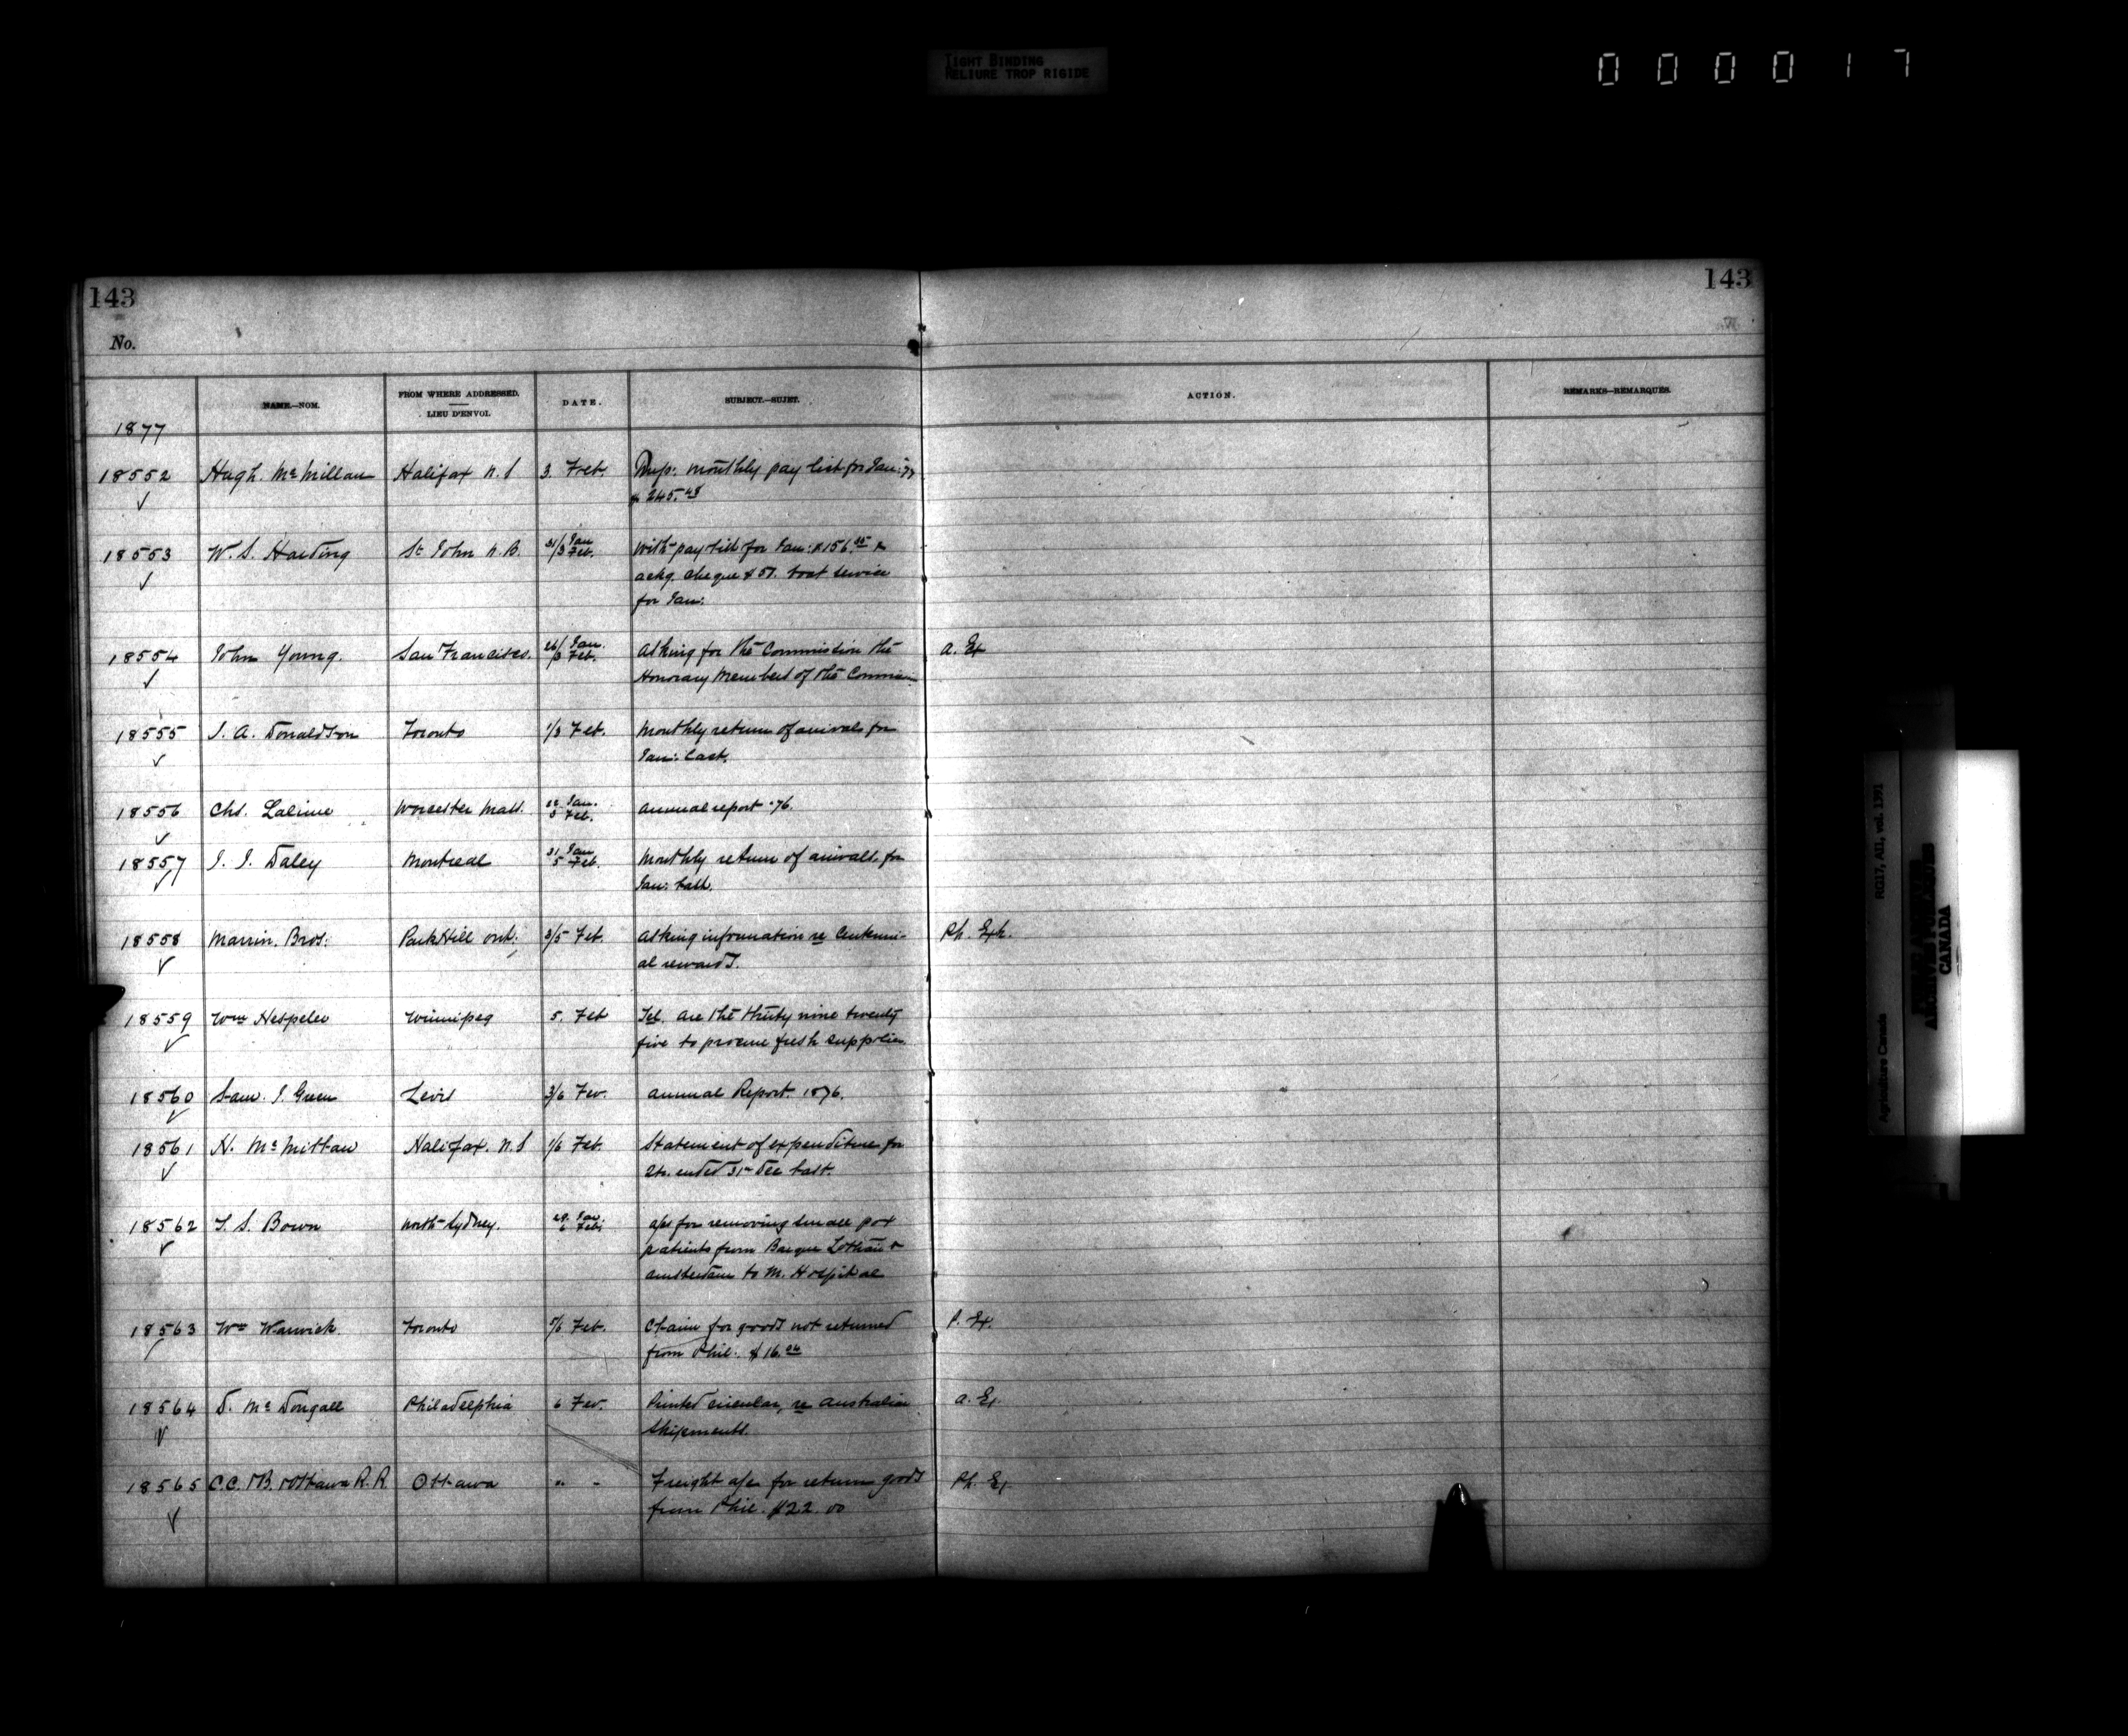 TIGHT BINDING
RELIURE TROP RIGIDE
000017
143 143
No.
NAME.—NOM. FROM WHERE ADDRESSED. LIEU D'ENVOI. DATE. SUBJECT.—SUJET. ACTION. REMARKS—REMARQUES.
1877
18552 Hugh McMillan Halifax N.S 3 Feb. monthly pay list for Jan: 77
$245.48
18553 W. S. Harding St John N.B. 31/3 Jan Feb. With pay list for Jan: $156.
ackg. cheque $51. boat service
for Jan:
18554 John Young. San Francisco. 26/3 Jan. Feb. Asking for the Commission the A. Ex
Honorary Members of the Commission
18555 J. A. Donaldson Toronto 1/3 Feb. Monthly return of arrivals for
Jan: last.
18556 Chs. Lalime Worcester Mass. Jan. Feb. annual report '76.
18557 J. J. Daley Montreal 31 Jan 5 Feb. Monthly return of arrivals for
Jan: last.
18558 Marrin. Bros: ParkHill Ont: 3/5 Feb. Asking information re Centenni- Ph. Exh.
al rewards.
18559 Wm Hespeler Winnipeg 5. Feb Tel. are the thirty nine twenty
five to procure fresh supplies
18560 Sam. J. Green Levis 3/6 Fev. annual Report 1876.
18561 H. McMillan Halifax. N.S 1/6 Feb. Statement of expenditure for
Qtr. ended 31st Dec last.
18562 T. S. Bown North Sydney. 29 Jan 6 Feb. a/c for removing small pox
patients from Barque Lothair &
Amsterdam to M. Hospital
18563 Wm Warwick Toronto 5/6 Feb. Claim for goods not returned P. Ex.
from Phil: $16.
18564 D. McDougall Philadelphia 6 Fev. Printed circular, re Australian A. Ex.
Shipments.
18565 C.C. & Ottawa R.R. Ottawa " - Freight a/c for return goods Ph. Ex.
from Phil. $22.00
Agriculture Canada RG17, AII, vol. 1391
PUBLIC ARCHIVES
ARCHIVES PUBLIQUES
CANADA